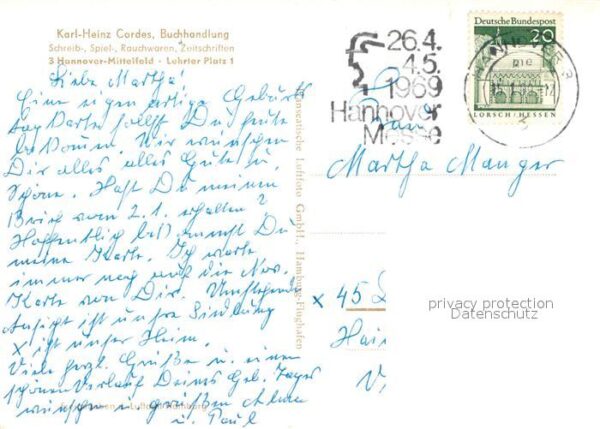 Karl-Heinz Cordes, Buchhandlung
Schreib-, Spiel-, Rauchwaren, Zeitschriften
3 Hannover-Mittelfeld - Lehrter Platz 1
Liebe Martha!
Eine eigenartige Geburts
tag Karte sollst Du heute
bekommen. Wir wünschen
Dir alles alles Gute u.
Schöne. Hast Du meinen
Brief vom 2.1. erhalten?
Hoffentlich bekommst Du
meine Karte. Ich warte
immer noch auf die
Karte von Dir. Umstehende
Ansicht ist unsre Siedlung
x ist unser Heim.
Viele herzl. Grüße u. einen
schönen Verlauf Deines Geb. Tages
wünschen u. grüßen
u. Paul
Hanseatische Luftfoto GmbH., Hamburg-Flughafen
26.4.
4.5.
1969
Hannover
Messe
Deutsche Bundespost
20
LORSCH/HESSEN
HANNOVER
Frau
Martha Manger
x 45
privacy protection
Datenschutz